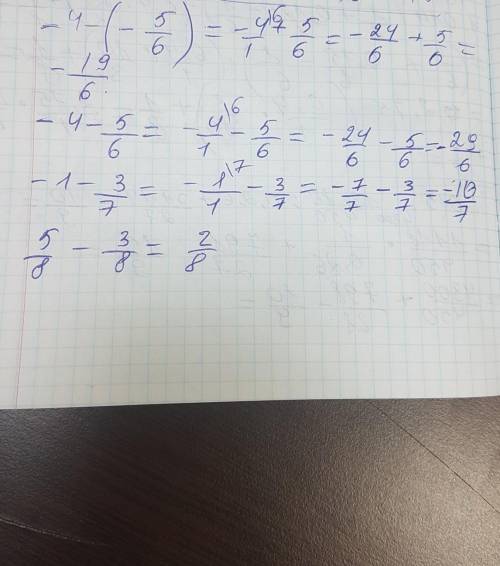 -4-(-5/6) = -4\6/1 + 5/6 = -24/6 + 5/6 =
-19/6.
-4 - 5/6 = -4\6/1 - 5/6 = -24/6 - 5/6 = -29/6
-1 - 3/7 = -1\7/1 - 3/7 = -7/7 - 3/7 = -10/7
5/8 - 3/8 = 2/8